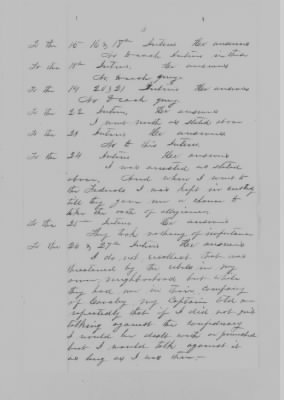 3
To the 15 16 & 18th Inters Her answers
No to each Inters in these
To the 18th Inters. Her answers
No to each query
To the 19 20 & 21 Inters Her answers
No to each query
To the 22 Inters, Her answers
I went north as stated above
To the 23 Inters Her answers
No to this Inters
To the 24 Inters Her answers
I was arrested as stated
above, And when I went to
the Federals I was kept in custody
till they gave me a chance to
take the oath of allegiance
To the 25th Inters Her answers
They took nothing of importance
To the 26 & 27th Inters Her answers
I do not recollect that was
threatened by the rebels in my
own neighborhood but while
they had me in their company
of Cavalry my Captain told me
repeatedly that if I did not quit
talking against the confederacy
I would be dealt with or punished
but I would talk against it
as long as I was there